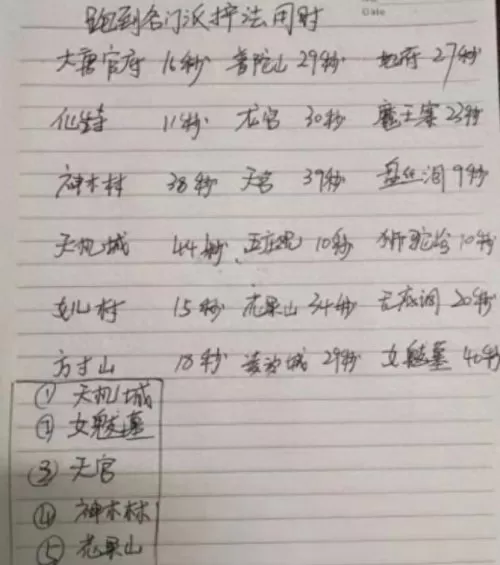 跑到各门派护法用时
Date
大唐官府 16秒 普陀山 29秒 地府 27秒
仙缘 11秒 龙宫 30秒 魔王寨 23秒
神木林 38秒 天宫 39秒 盘丝洞 9秒
天机城 44秒 五庄观 10秒 狮驼岭 10秒
女儿村 15秒 花果山 34秒 无底洞 20秒
方寸山 18秒 凌波城 29秒 女魃墓 42秒
① 天机城
② 女魃墓
③ 天宫
④ 神木林
⑤ 花果山